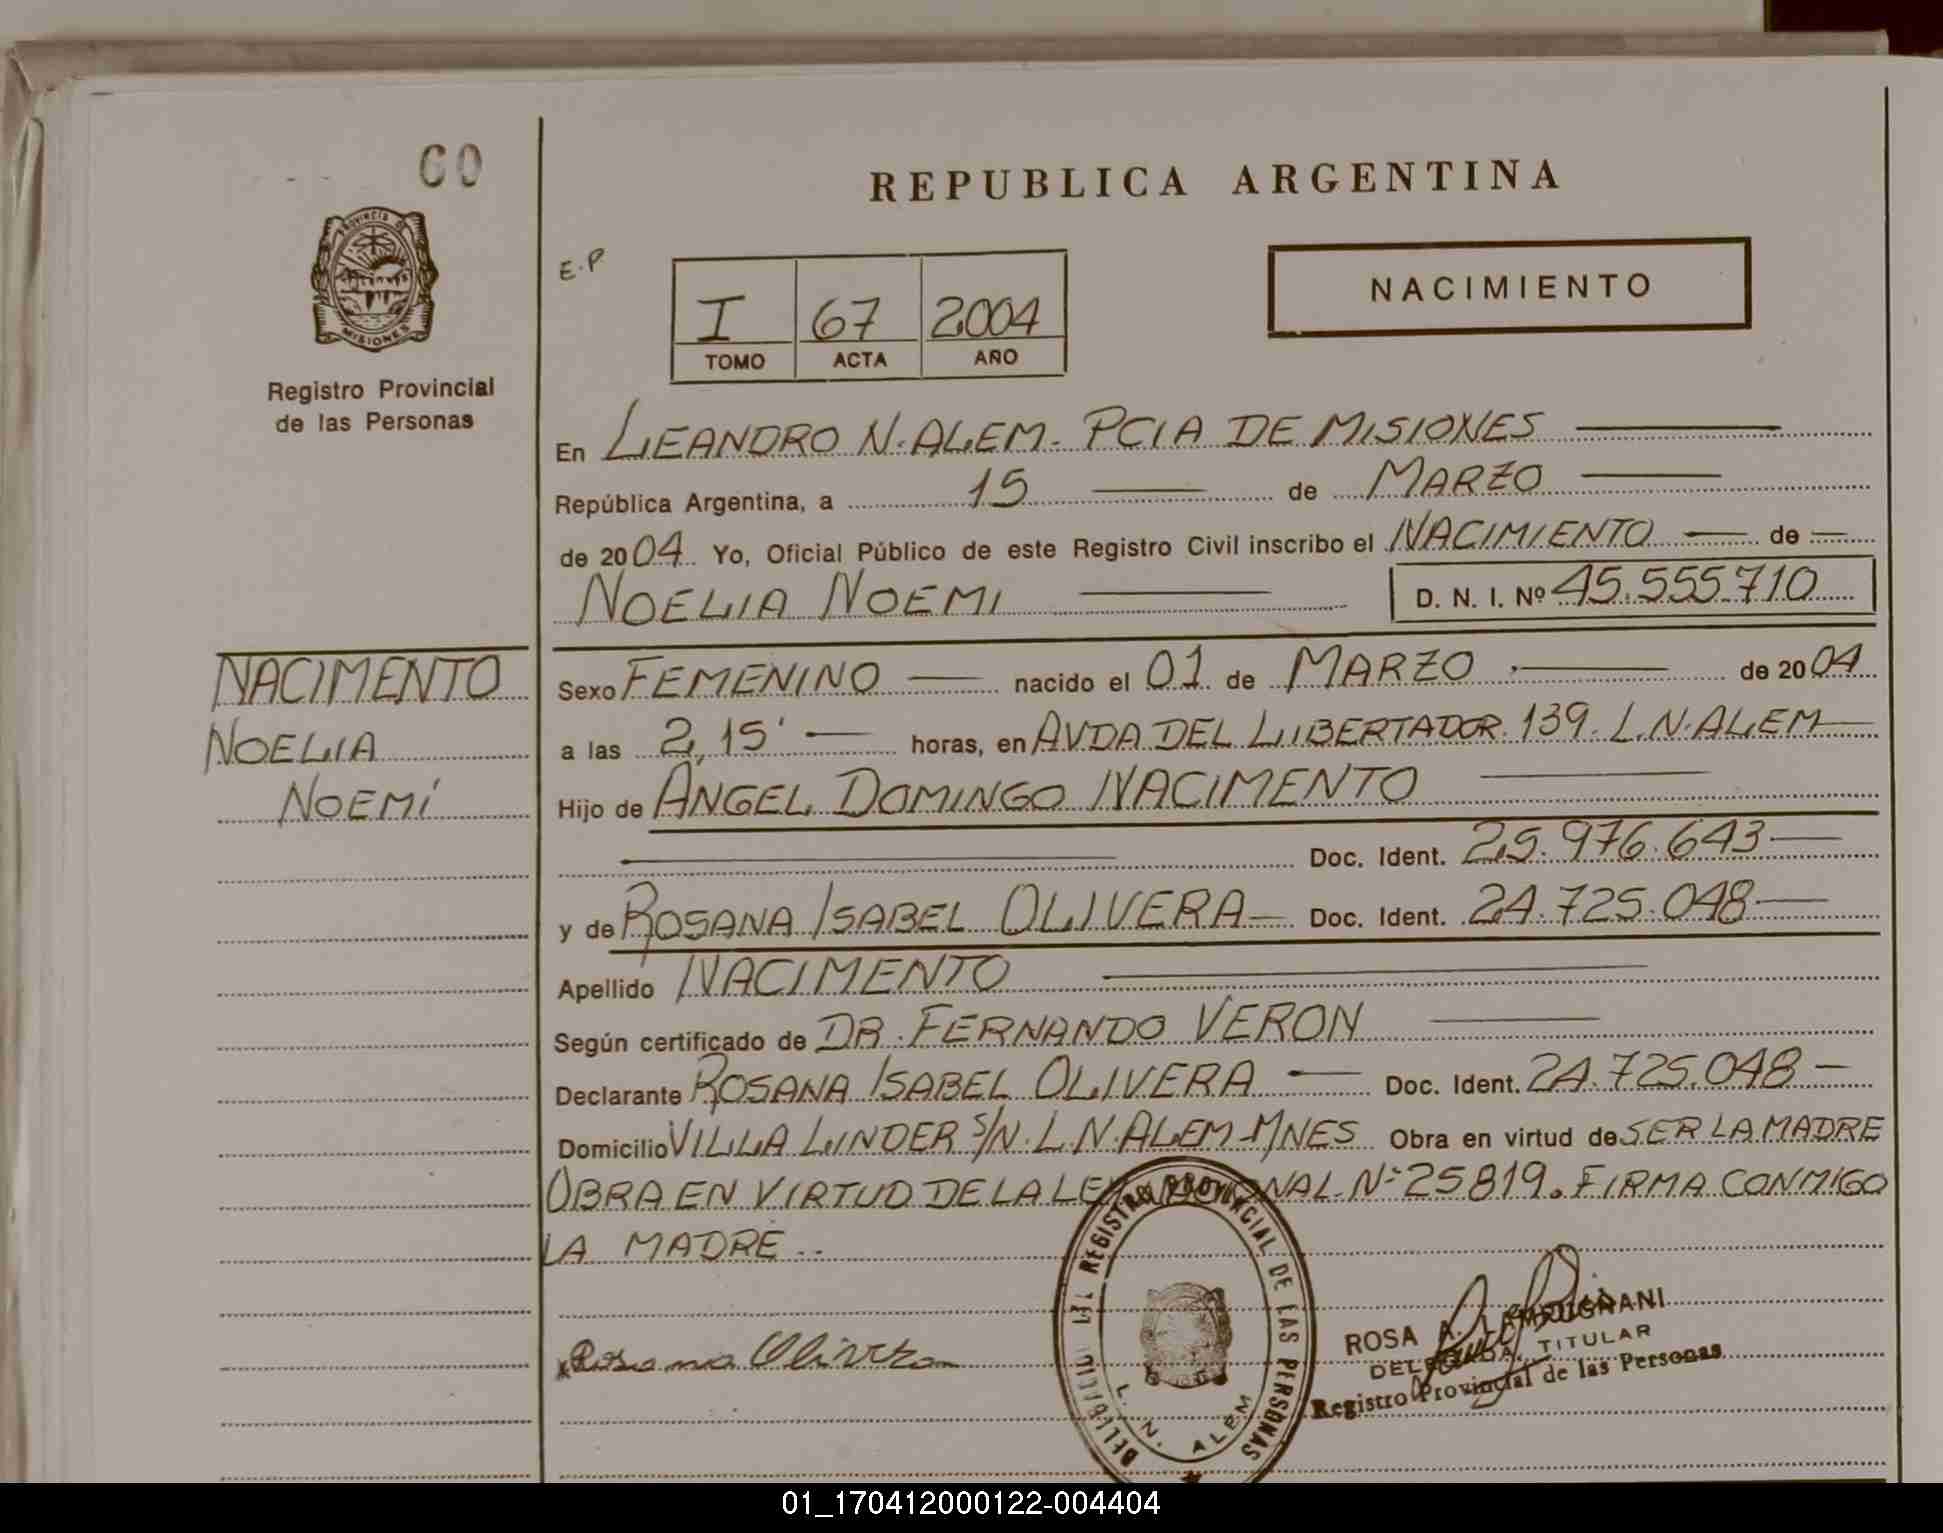 60
REPUBLICA ARGENTINA
PROVINCIA DE MISIONES
Registro Provincial
de las Personas
E.P
NACIMIENTO
I 67 2004
TOMO ACTA AÑO
En LEANDRO N. ALEM - PCIA DE MISIONES
República Argentina, a 15 de MARZO
de 2004 Yo, Oficial Público de este Registro Civil inscribo el NACIMIENTO de
NOELIA NOEMI D. N. I. Nº 45.555.710
NACIMENTO
NOELIA
NOEMÍ
Sexo FEMENINO nacido el 01 de MARZO de 2004
a las 2,15' horas, en AVDA DEL LIBERTADOR 139. L.N. ALEM
Hijo de ANGEL DOMINGO NACIMENTO
Doc. Ident. 25.976.643
y de ROSANA ISABEL OLIVERA Doc. Ident. 24.725.048
Apellido NACIMENTO
Según certificado de DR. FERNANDO VERON
Declarante ROSANA ISABEL OLIVERA Doc. Ident. 24.725.048
Domicilio VILLA LINDER S/N. L.N. ALEM - MNES Obra en virtud de SER LA MADRE
OBRA EN VIRTUD DE LA LEY NACIONAL Nº 25819. FIRMA CONMIGO
LA MADRE..
Rosana Olivera
REGISTRO PROVINCIAL DE LAS PERSONAS
L. N. ALEM
ROSA A. LAMRUGNANI
DELEGADA TITULAR
Registro Provincial de las Personas
01_170412000122-004404